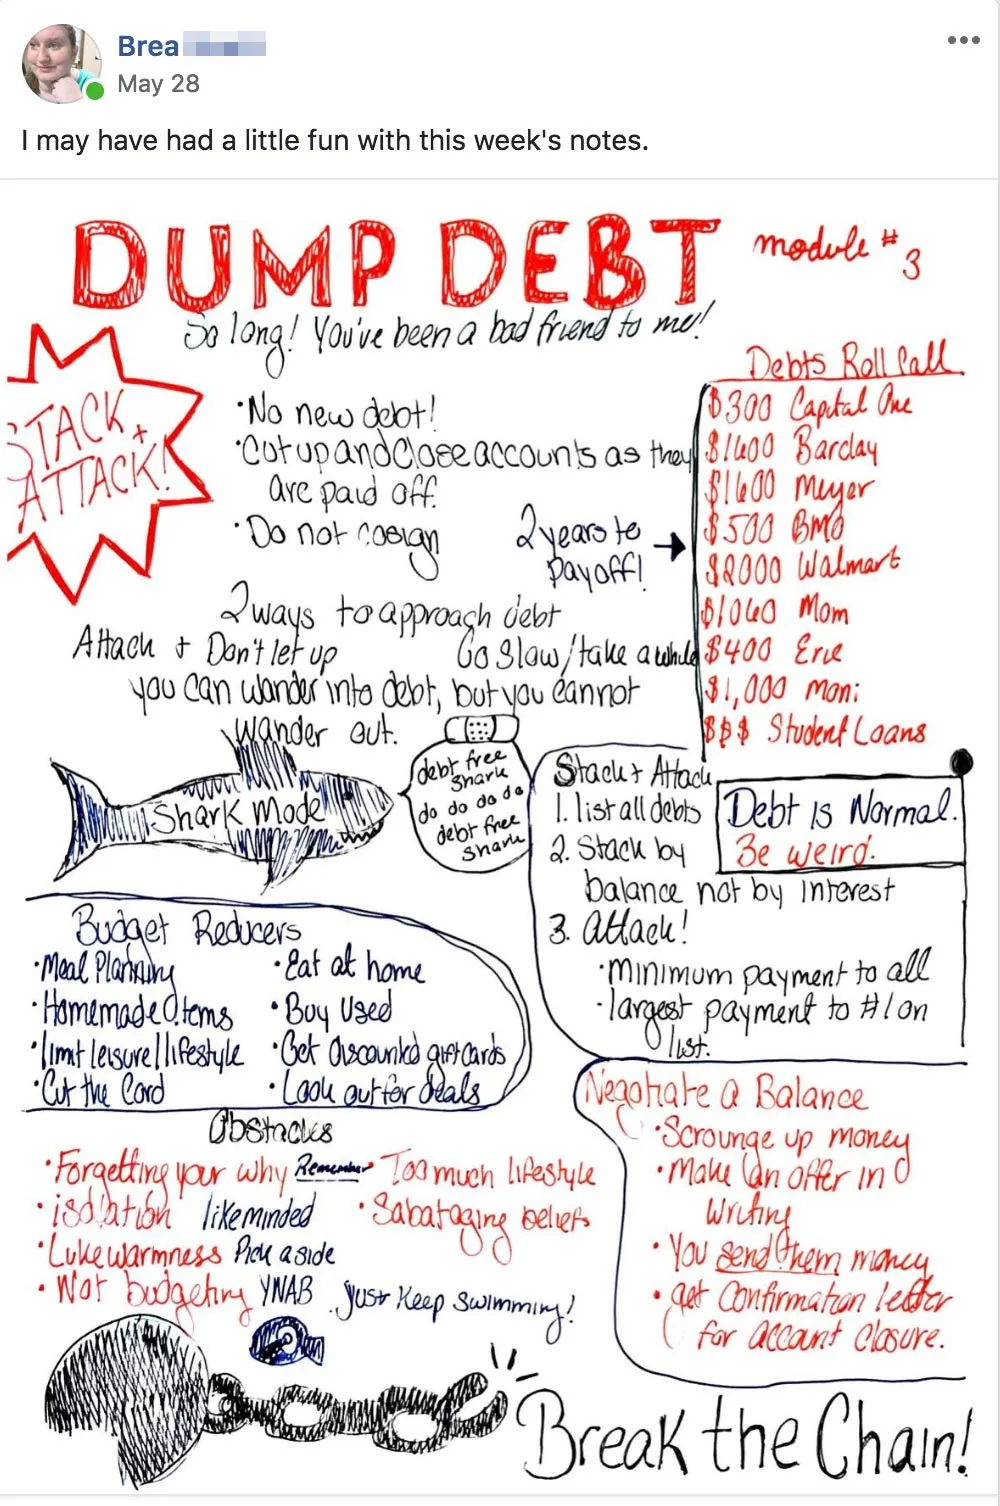 Brea
May 28
I may have had a little fun with this week's notes.
DUMP DEBT
module #3
So long! You've been a bad friend to me!
STACK +
ATTACK!
• No new debt!
• Cut up and close accounts as they
are paid off.
• Do not cosign
2 years to
payoff!
Debts Roll Call
$300 Capital One
$1600 Barclay
$1600 Meyer
$500 BMO
$2000 Walmart
$1060 Mom
$400 Erie
$1,000 Moni
$$$ Student Loans
2 ways to approach debt
Attack + Don't let up
Go Slow/take a while
you can wander into debt, but you cannot
wander out.
Shark Mode
debt free
shark
do do do do
debt free
shark
Stack + Attack
1. list all debts
2. Stack by
balance not by interest
3. Attack!
• minimum payment to all
• largest payment to #1 on
list.
Debt is Normal.
Be weird.
Budget Reducers
• Meal Planning
• Homemade Items
• limit leisure/lifestyle
• Cut the Cord
• Eat at home
• Buy Used
• Get discounted giftcards
• Look out for deals
Obstacles
• Forgetting your why Remember
• isolation likeminded
• Lukewarmness Pick a side
• Not budgeting YNAB
• Too much lifestyle
• Sabataging beliefs
Just Keep Swimming!
Negotiate a Balance
• Scrounge up money
• Make an offer in
Writing
• You send them money
• get Confirmation letter
for account closure.
Break the Chain!